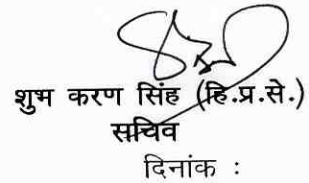 शुभ करण सिंह (हि.प्र.से.)
सचिव
दिनांक :